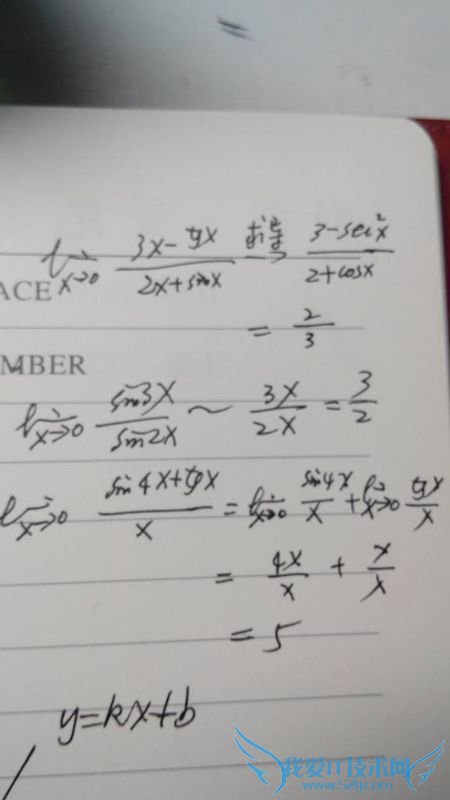 lim x→0 (3x-tgx)/(2x+sinx) 求导→ (3-sec²x)/(2+cosx)
ACE
= 2/3
MBER
lim x→0 sin3x/sin2x ~ 3x/2x = 3/2
lim x→0 (sin4x+tgx)/x = lim x→0 sin4x/x + lim x→0 tgx/x
= 4x/x + x/x
= 5
y=kx+b
我爱IT技术网
www.52ip.com